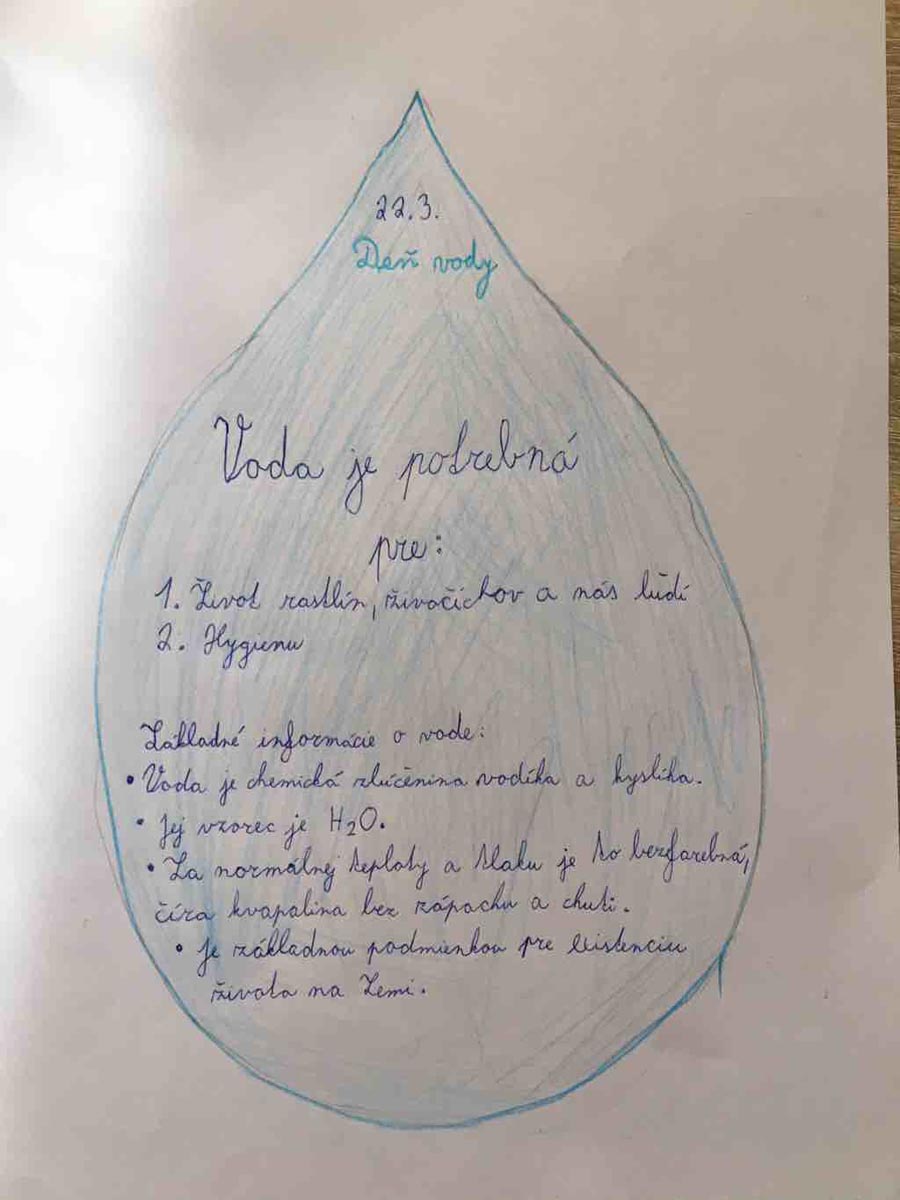 22.3.
Deň vody
Voda je potrebná
pre:
1. Život rastlín, živočíchov a nás ľudí
2. Hygienu
Základné informácie o vode:
• Voda je chemická zlúčenina vodíka a kyslíka.
• Jej vzorec je H₂O.
• Za normálnej teploty a tlaku je to bezfarebná,
číra kvapalina bez zápachu a chuti.
• Je základnou podmienkou pre existenciu
života na Zemi.